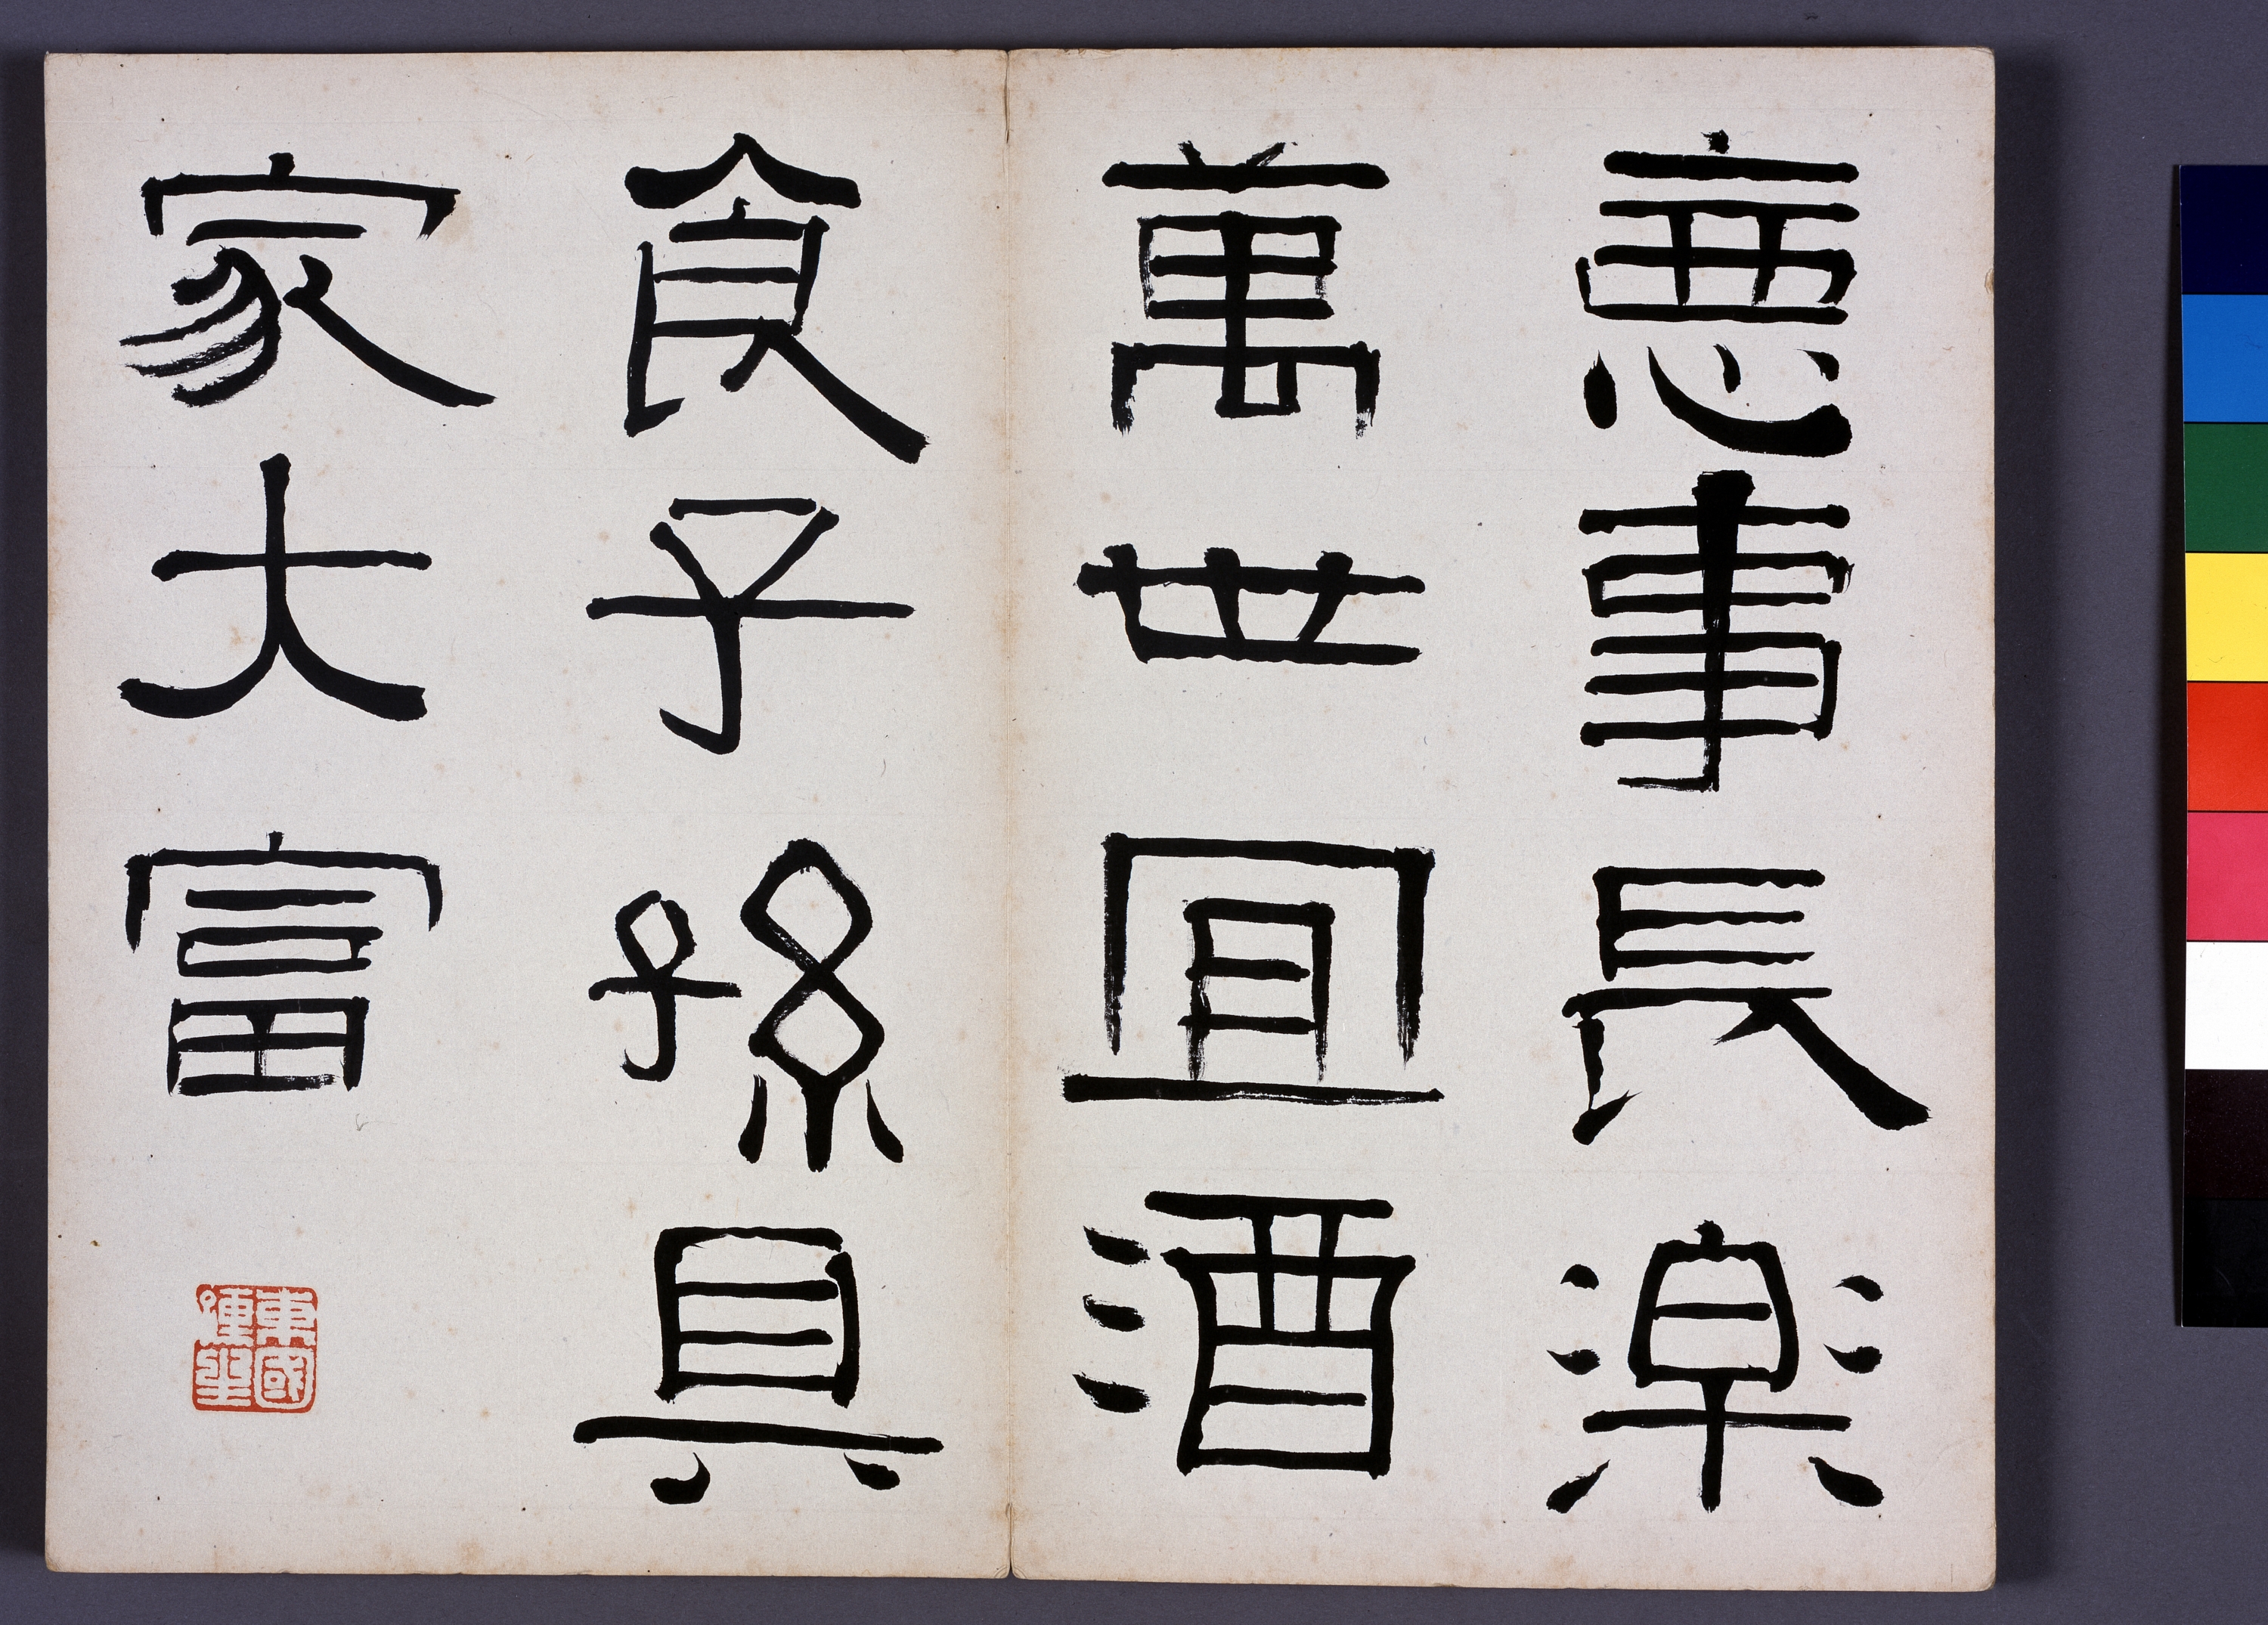 惡事長樂
萬世宜酒
食子孫具
家大富
東國